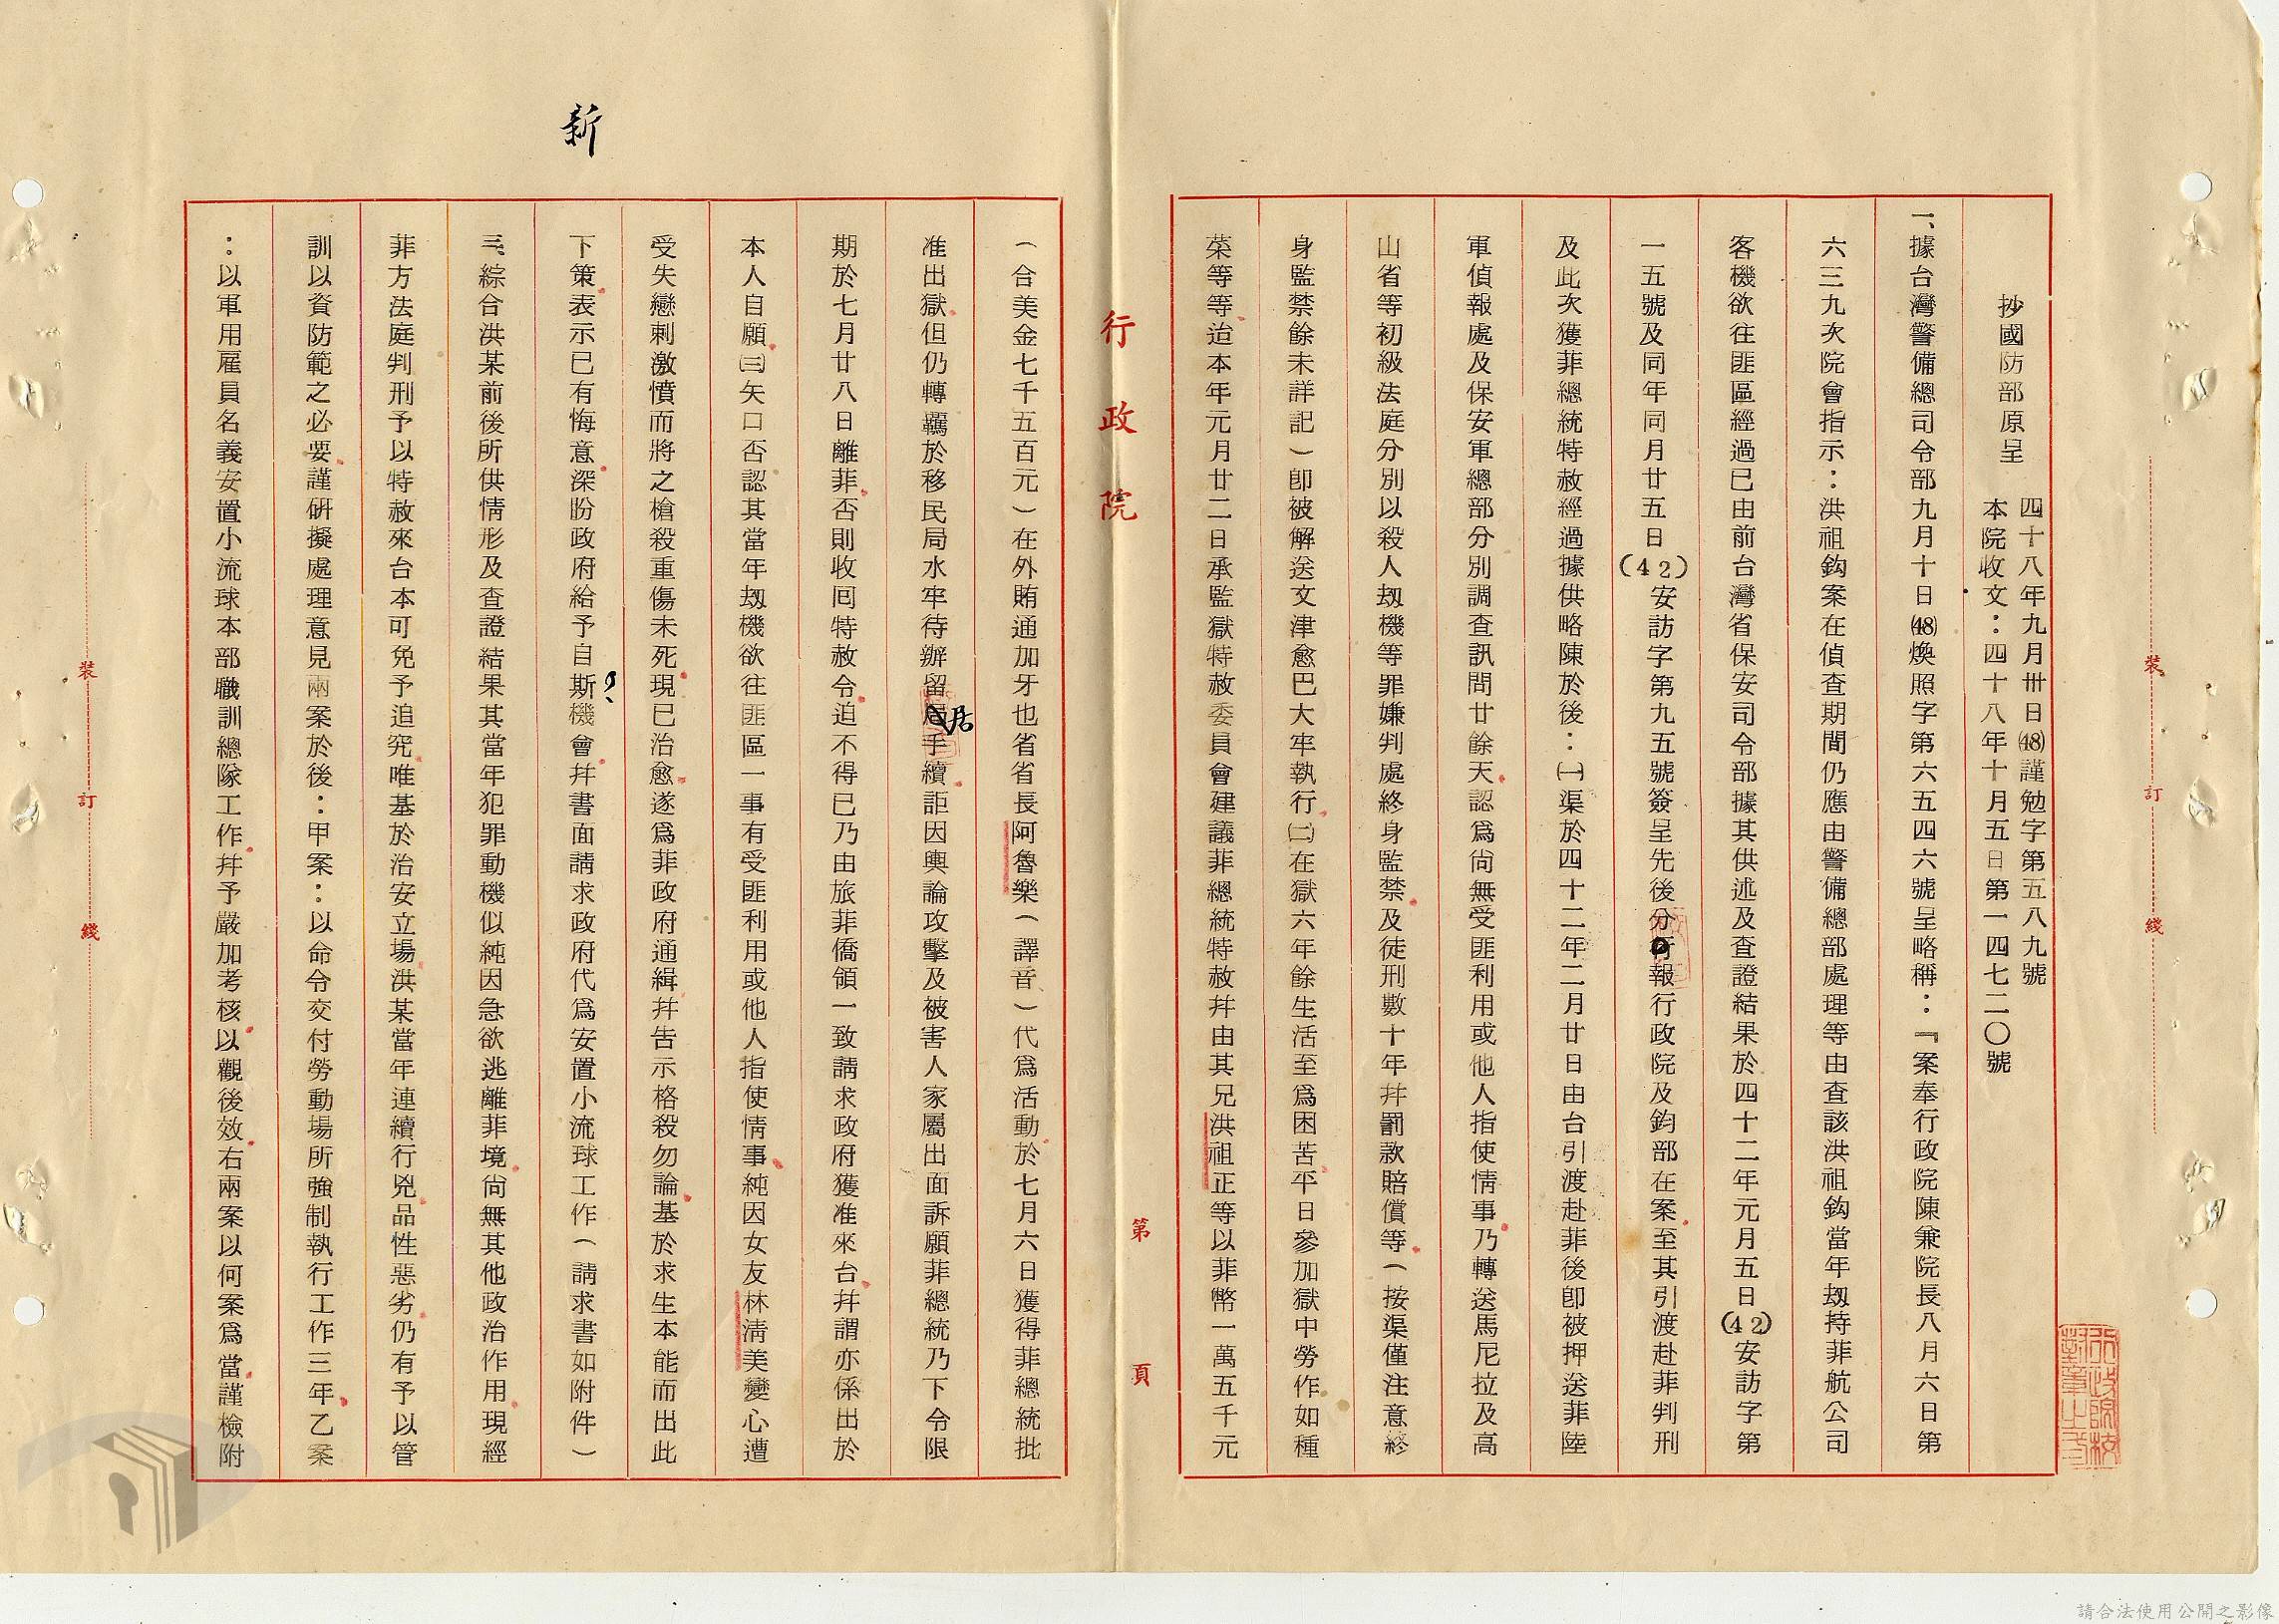 抄國防部原呈
四十八年九月卅日㈽謹勉字第五八九號
本院收文：四十八年十月五日第一四七二〇號
一、據台灣警備總司令部九月十日(48)煥照字第六五四六號呈略稱：『案奉行政院陳兼院長八月六日第
六三九次院會指示：洪祖鈎案在偵查期間仍應由警備總部處理等由查該洪祖鈎當年刼持菲航公司
客機欲往匪區經過已由前台灣省保安司令部據其供述及查證結果於四十二年元月五日(42)安訪字第
一五號及同年同月廿五日(42)安訪字第九五號簽呈先後分報行政院及鈞部在案至其引渡赴菲判刑
及此次獲菲總統特赦經過據供略陳於後：㈠渠於四十二年二月廿日由台引渡赴菲後卽被押送菲陸
軍偵報處及保安軍總部分別調查訊問廿餘天認爲尙無受匪利用或他人指使情事乃轉送馬尼拉及高
山省等初級法庭分別以殺人刼機等罪嫌判處終身監禁及徒刑數十年幷罰款賠償等（按渠僅注意終
身監禁餘未詳記）卽被解送文津愈巴大牢執行㈡在獄六年餘生活至爲困苦平日參加獄中勞作如種
菜等等迨本年元月廿二日承監獄特赦委員會建議菲總統特赦幷由其兄洪祖正等以菲幣一萬五千元
行政院
第　頁
（合美金七千五百元）在外賄通加牙也省省長阿魯樂（譯音）代爲活動於七月六日獲得菲總統批
准出獄但仍轉羈於移民局水牢待辦留居手續詎因輿論攻擊及被害人家屬出面訴願菲總統乃下令限
期於七月廿八日離菲否則收囘特赦令迫不得已乃由旅菲僑領一致請求政府獲准來台幷謂亦係出於
本人自願㈢矢口否認其當年刼機欲往匪區一事有受匪利用或他人指使情事純因女友林淸美變心遭
受失戀刺激憤而將之槍殺重傷未死現已治愈遂爲菲政府通緝幷告示格殺勿論基於求生本能而出此
下策表示已有悔意深盼政府給予自斯機會幷書面請求政府代爲安置小流球工作（請求書如附件）
新
三、綜合洪某前後所供情形及查證結果其當年犯罪動機似純因急欲逃離菲境尙無其他政治作用現經
菲方法庭判刑予以特赦來台本可免予追究唯基於治安立場洪某當年連續行兇品性惡劣仍有予以管
訓以資防範之必要謹硏擬處理意見兩案於後：甲案：以命令交付勞動場所強制執行工作三年乙案
：以軍用雇員名義安置小流球本部職訓總隊工作幷予嚴加考核以觀後效右兩案以何案爲當謹檢附
裝
訂
綫
裝
訂
綫
請合法使用公開之影像